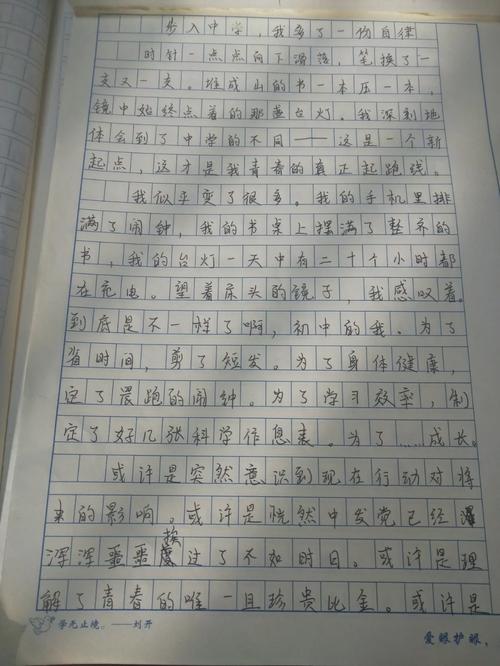 步入中学,我多了一份自律
时针一点点向下滑落,笔换了一
支又一支。堆成山的书一本压一本,
镜中始终点着的那盏台灯。我深刻地
体会到了中学的不同——这是一个新
起点,这才是我青春的真正起跑线。
我似乎变了很多。我的手机里排
满了闹钟,我的书桌上摆满了整齐的
书,我的台灯一天中有二十个小时都
在充电。望着床头的镜子,我感叹着
到底是不一样了啊,初中的我。为了
省时间,剪了短发。为了身体健康,
定了晨跑的闹钟。为了学习效率,制
定了好几张科学作息表。为了……成长。
或许是突然意识到现在行动对将
来的影响。或许是恍然中发觉已经
浑浑噩噩挨过了不知时日。或许是理
解了青春的唯一且珍贵比金。或许是
学无止境。——刘开
爱眼护眼,